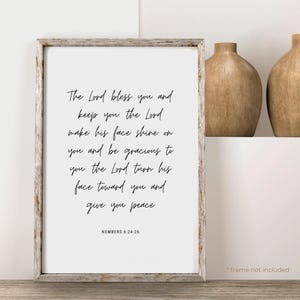 The Lord bless you and
keep you the Lord
make his face shine on
you and be gracious to
you the Lord turn his
face toward you and
give you peace
NUMBERS 6:24-26
* frame not included